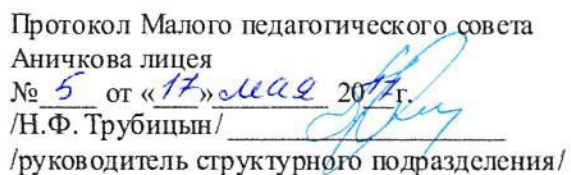 Протокол Малого педагогического совета
Аничкова лицея
№ 5 от «17» мая 2017г.
/Н.Ф. Трубицын/
/руководитель структурного подразделения/